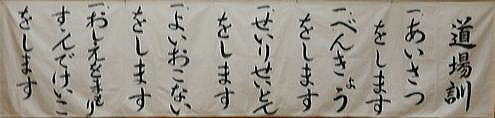 道場訓
一、あいさつ
をします
一、べんきょう
をします
一、せいりせいとん
をします
一、よいおこない
をします
一、おしえをまもり
すゝんでけいこ
をします